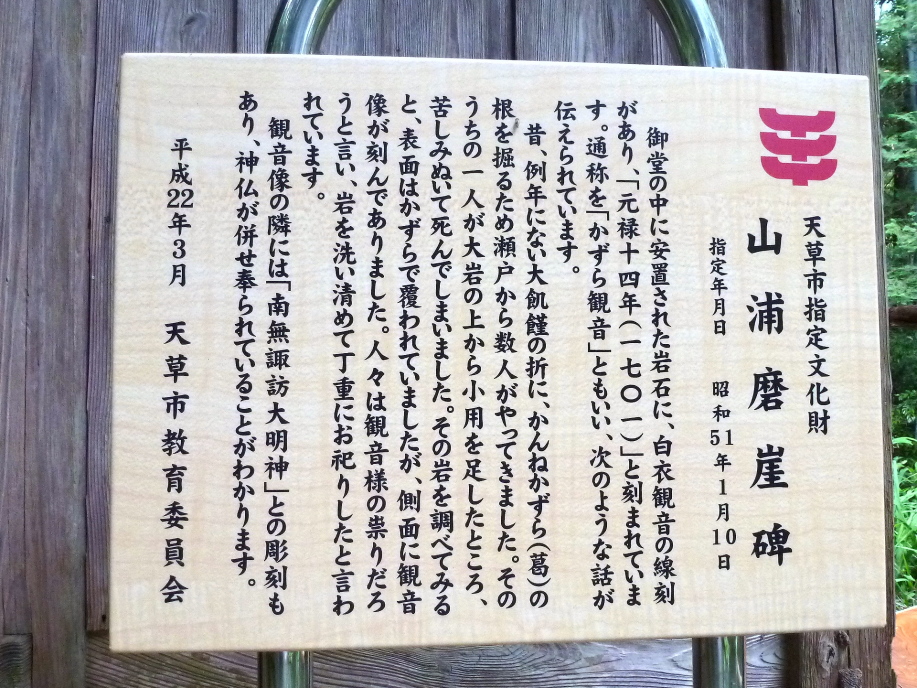 天草市指定文化財
山浦磨崖碑
指定年月日 昭和51年1月10日
御堂の中に安置された岩石に、白衣観音の線刻
があり、「元禄十四年(一七〇一)」と刻まれていま
す。通称を「かずら観音」ともいい、次のような話が
伝えられています。
昔、例年にない大飢饉の折に、かんねかずら(葛)の
根を掘るため瀬戸から数人がやってきました。その
うちの一人が大岩の上から小用を足したところ、
苦しみぬいて死んでしまいました。その岩を調べてみる
と、表面はかずらで覆われていましたが、側面に観音
像が刻んでありました。人々は観音様の祟りだろ
うと言い、岩を洗い清めて丁重にお祀りしたと言わ
れています。
観音像の隣には「南無諏訪大明神」との彫刻も
あり、神仏が併せ奉られていることがわかります。
平成22年3月 天草市教育委員会